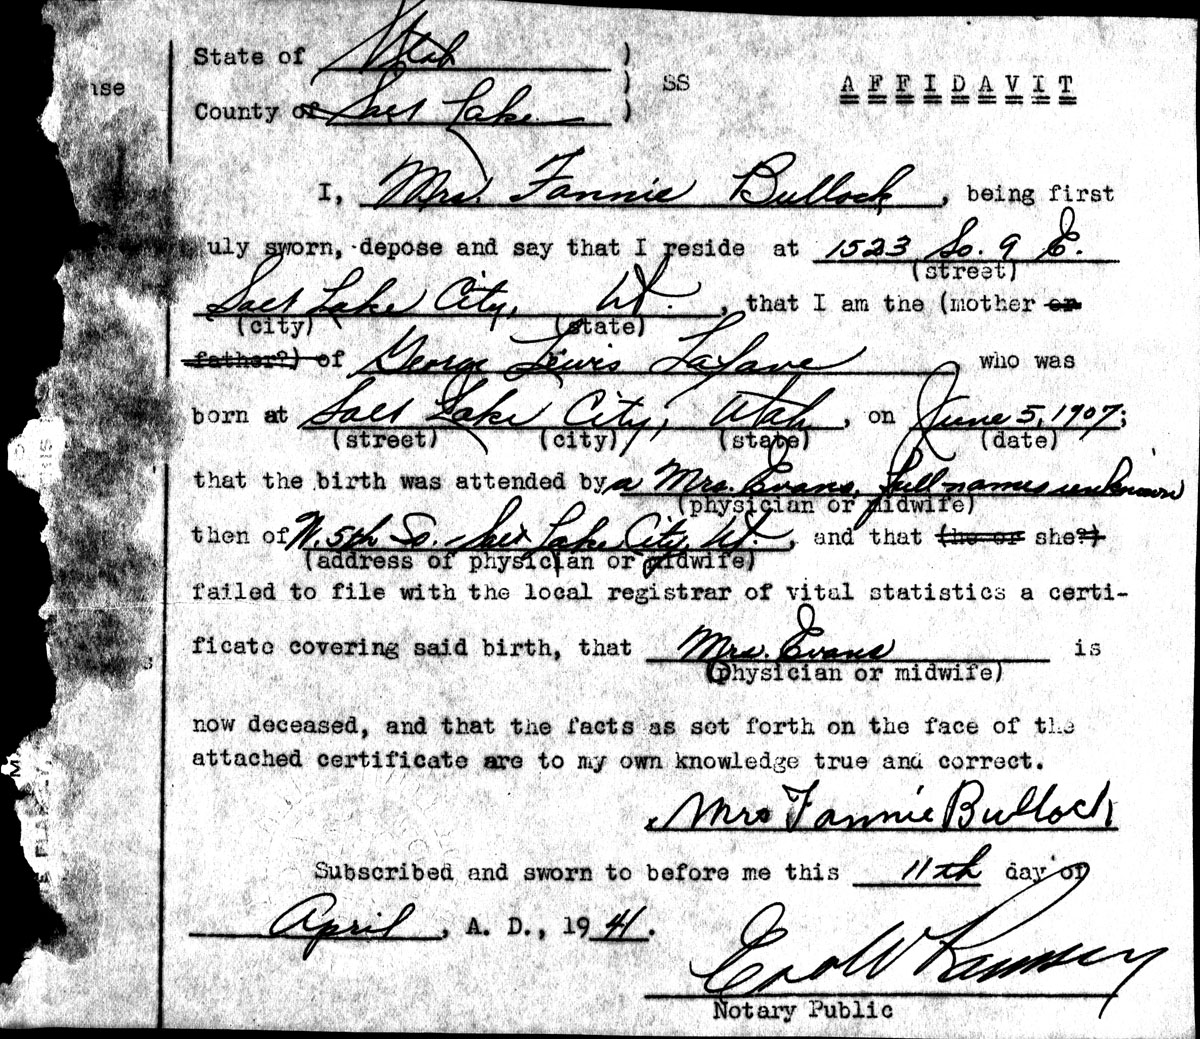 State of Utah )
) SS AFFIDAVIT
County of Salt Lake )
use
I, Mrs. Fannie Bullock, being first
uly sworn, depose and say that I reside at 1523 So. 9 E.
(street)
Salt Lake City, Ut., that I am the (mother or
(city) (state)
father?) of George Lewis LaFave who was
born at Salt Lake City, Utah, on June 5, 1907;
(street) (city) (state) (date)
that the birth was attended by a Mrs. Evans, full names unknown
(physician or midwife)
then of W. 5th So. - Salt Lake City, Ut., and that (he or she?)
(address of physician or midwife)
failed to file with the local registrar of vital statistics a certi-
ficate covering said birth, that Mrs. Evans is
(physician or midwife)
now deceased, and that the facts as set forth on the face of the
attached certificate are to my own knowledge true and correct.
Mrs Fannie Bullock
Subscribed and sworn to before me this 11th day of
April, A. D., 1941.
Notary Public